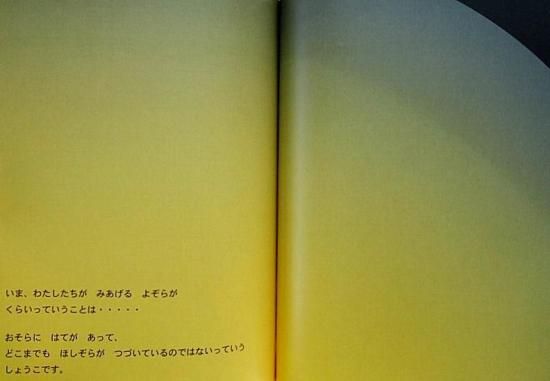 いま、わたしたちが　みあげる　よぞらが
くらいっていうことは・・・・・
おそらに　はてが　あって、
どこまでも　ほしぞらが　つづいているのではないっていう
しょうこです。